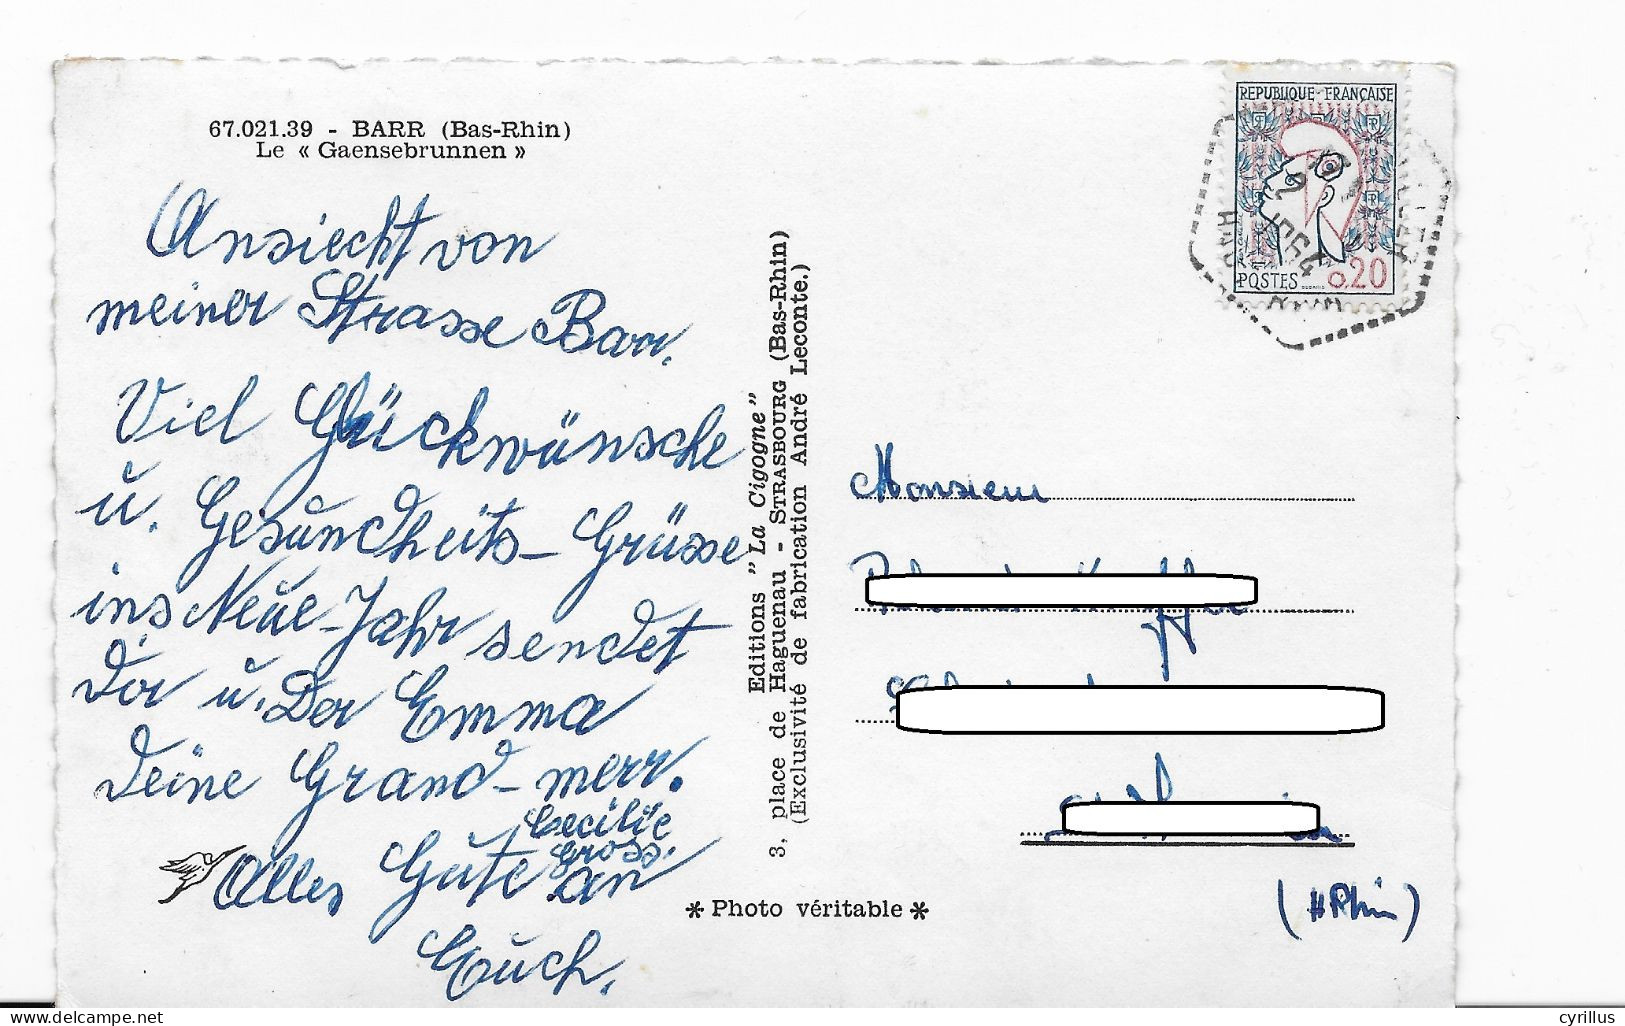 67.021.39 - BARR (Bas-Rhin)
Le « Gaensebrunnen »
Ansiecht von
meiner Strasse Barr.
Viel Glückwünsche
u. Gesundheits-Grüsse
ins Neue-Jahr sendet
Dir u. Der Emma
Deine Grand-merr.
Cecilie
Gross.
Alles Gute an
Euch.
Editions "La Cigogne"
3, place de Haguenau - STRASBOURG (Bas-Rhin)
(Exclusivité de fabrication André Leconte.)
* Photo véritable *
REPUBLIQUE FRANÇAISE
POSTES 0,20
1964
Monsieur
(H Rhin)
www.delcampe.net
cyrillus